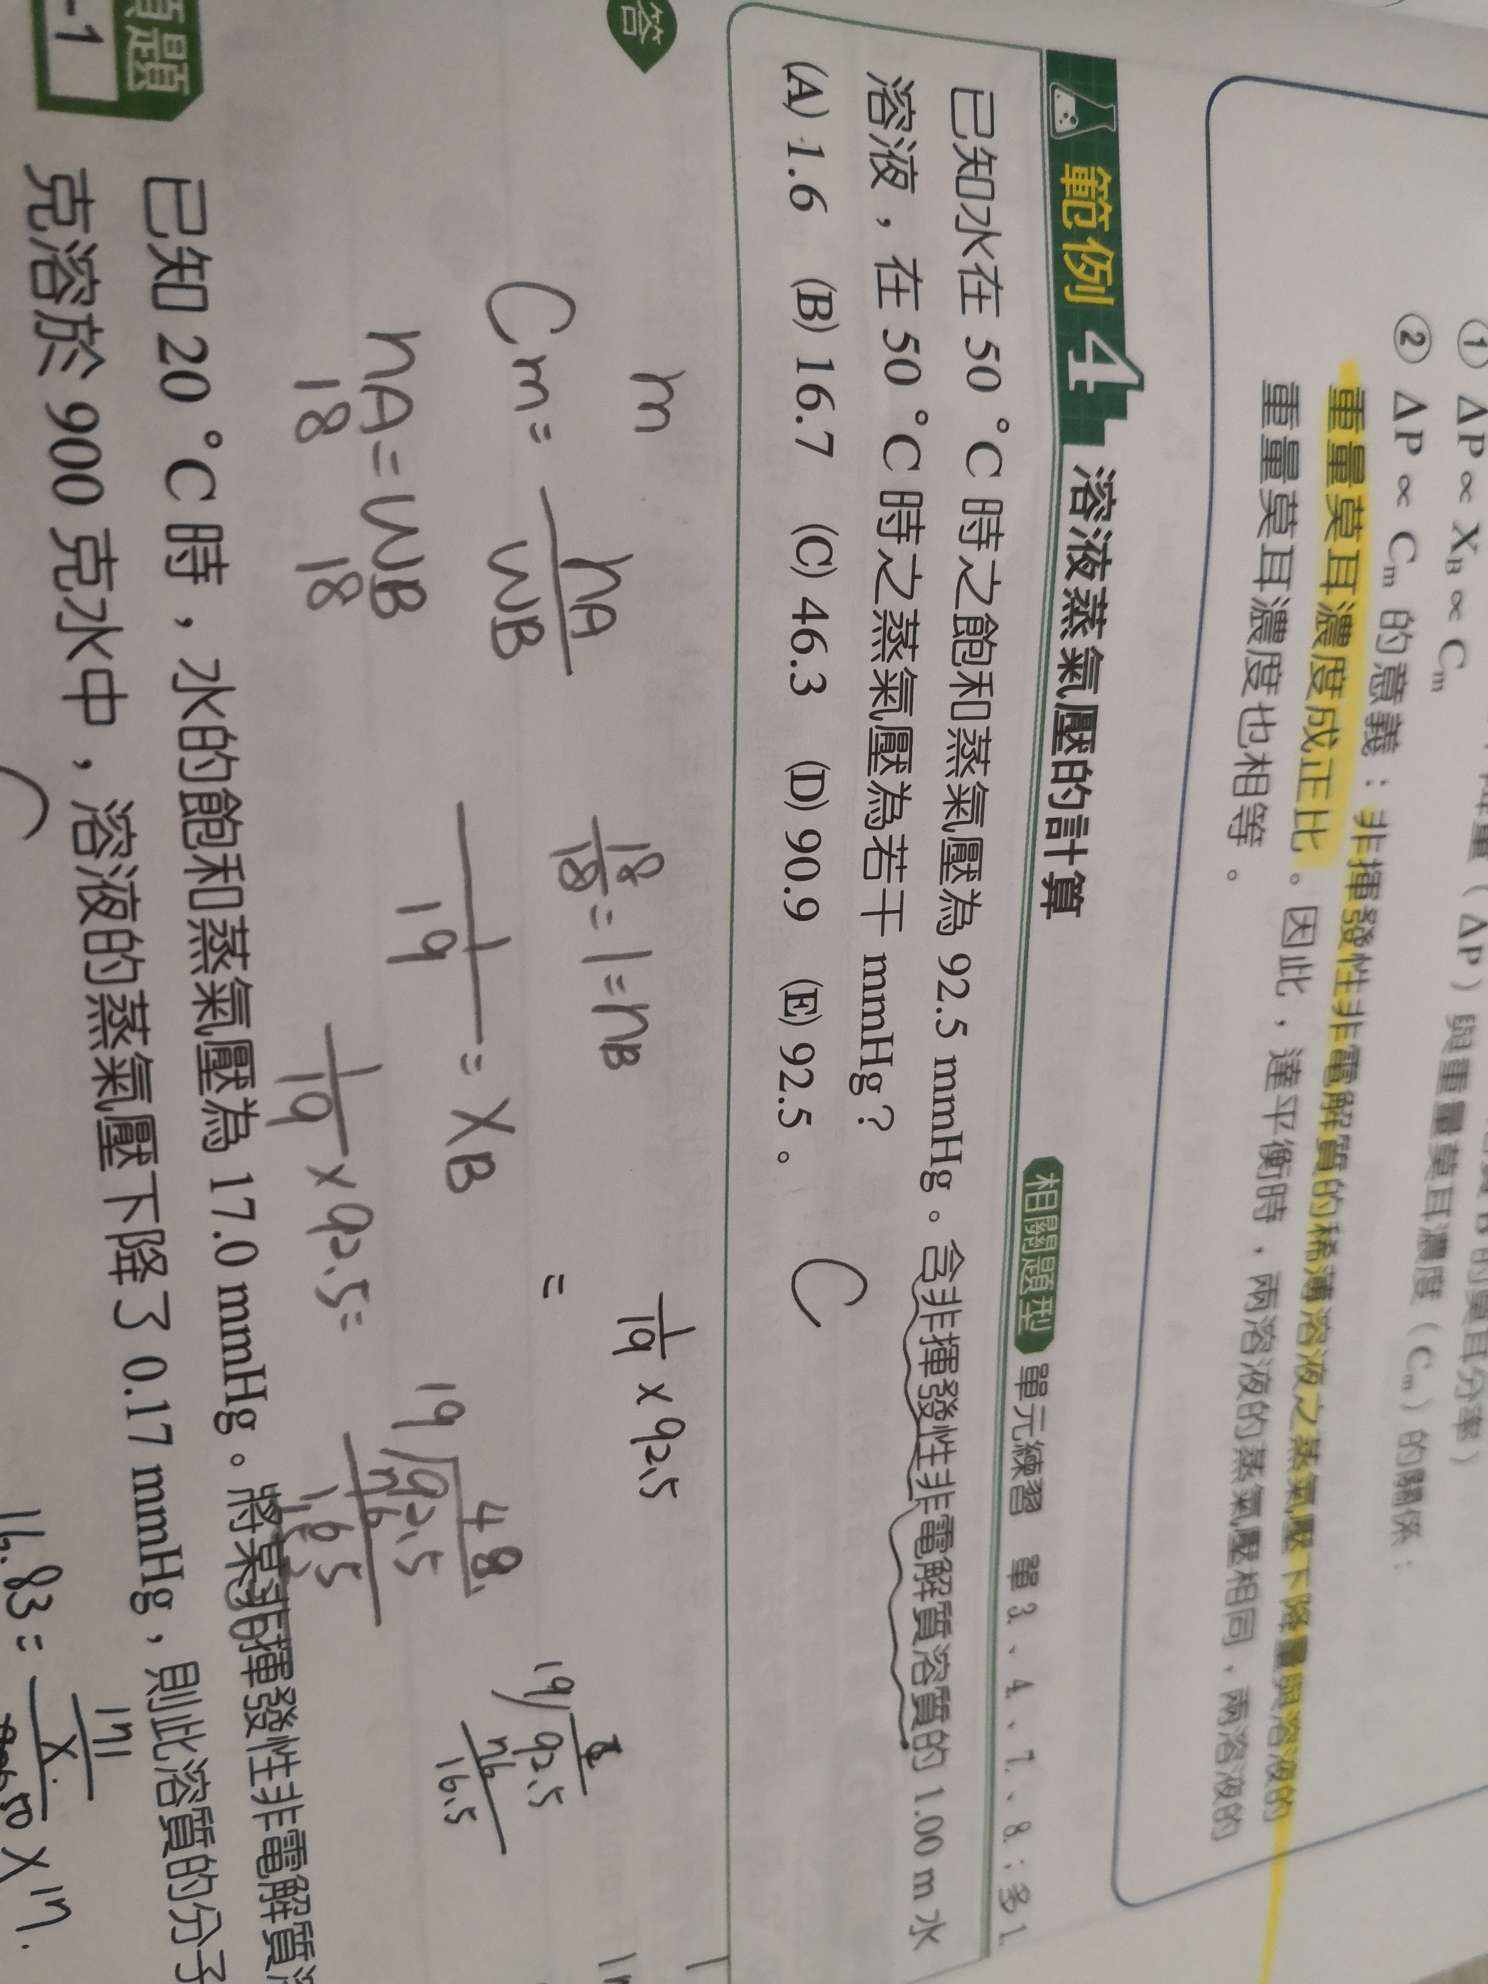 ① ΔP ∝ X_B ∝ C_m
② ΔP ∝ C_m 的意義：非揮發性非電解質的稀薄溶液之蒸氣壓下降量與溶液的
重量莫耳濃度成正比。因此，達平衡時，兩溶液的蒸氣壓相同，兩溶液的
重量莫耳濃度也相等。
範例 4 溶液蒸氣壓的計算
相關題型 單元練習 單 3.、4.、7.、8.；多 1.
已知水在 50 °C 時之飽和蒸氣壓為 92.5 mmHg。含非揮發性非電解質溶質的 1.00 m 水
溶液，在 50 °C 時之蒸氣壓為若干 mmHg？
(A) 1.6 (B) 16.7 (C) 46.3 (D) 90.9 (E) 92.5。
C
答
m
18/18 = 1 = nB
1/19 × 92.5
Cm = nA/WB
=
1/19 = XB
nA = WB
18 18
1/19 × 92.5 =
48.
19 92.5
76
165
19 92.5
76
16.5
題
-1
已知 20 °C 時，水的飽和蒸氣壓為 17.0 mmHg。將某非揮發性非電解質
克溶於 900 克水中，溶液的蒸氣壓下降了 0.17 mmHg，則此溶質的分子
16.83 =
× 17.